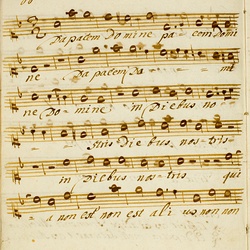 Da pacem Domine pa - cem Domi
ne Da pacem Da - mi
ne Do - mi ne in Diebus no
stris Die bus nos - tris
in Diebus nos - tris qui
a non est non est ali us non non